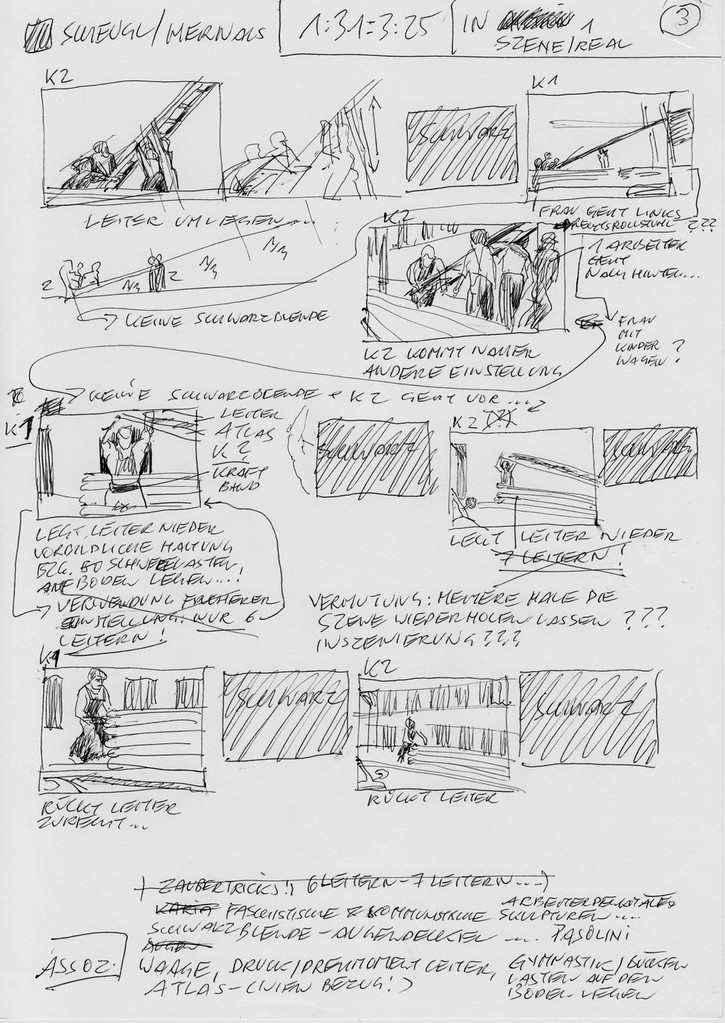 SCHEUGL/HERNALS
1:31=3:25
IN 1
SZENE/REAL
3
K2
SCHWARZ
K1
LEITER UMLEGEN...
K2
FRAU GEHT LINKS
???
1 ARBEITER
GEHT
NACH HINTEN...
2
2
KEINE SCHWARZBLENDE
FRAU
MIT
KINDER
WAGEN?
K2 KOMMT NÄHER
ANDERE EINSTELLUNG
KEINE SCHWARZBLENDE + K2 GEHT VOR...
K1
LEITER
ATLAS
K2
KRAFT
BAND
SCHWARZ
K2
SCHWARZ
LEGT LEITER NIEDER
VORBILDLICHE HALTUNG
BZG. LASTEN
AUF BODEN LEGEN...!
VERWENDUNG FRÜHERER
EINSTELLUNG. NUR 6
LEITERN!
LEGT LEITER NIEDER
7 LEITERN!
VERMUTUNG: MEHRERE MALE DIE
SZENE WIEDERHOLEN LASSEN ???
INSZENIERUNG???
K1
SCHWARZ
K2
SCHWARZ
RÜCKT LEITER
ZURECHT...
RÜCKT LEITER
+ ZAUBERTRICKS!! (6 LEITERN-7 LEITERN...)
FASCHISTISCHE & KOMMUNISTISCHE SKULPTUREN...
ARBEITERDENKMÄLER
SCHWARZBLENDE-AUGENDECKEL ... PASOLINI
AUGEN
ASSOZ.
WAAGE, DRUCK/DREHMOMENT LEITER,
ATLAS-LINIEN BEZUG!)
GYMNASTIK/BÜCKEN
LASTEN AUF DEN
BODEN LEGEN